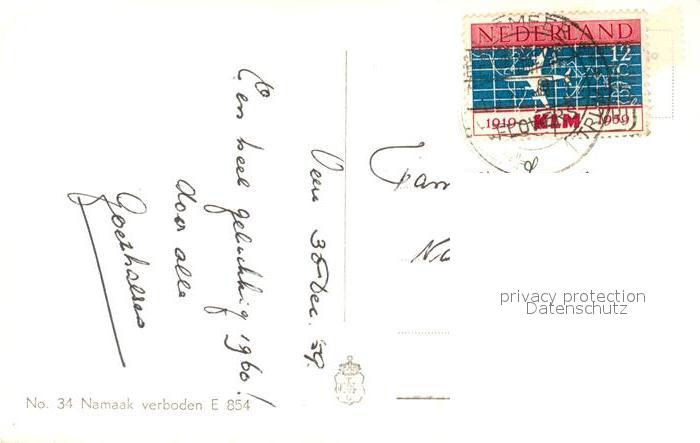 Veen 30 Dec. '59.
Een heel gelukkig 1960!
door alle
Fam
No
NEDERLAND
12 c
1919 KLM 1959
privacy protection
Datenschutz
No. 34 Namaak verboden E 854